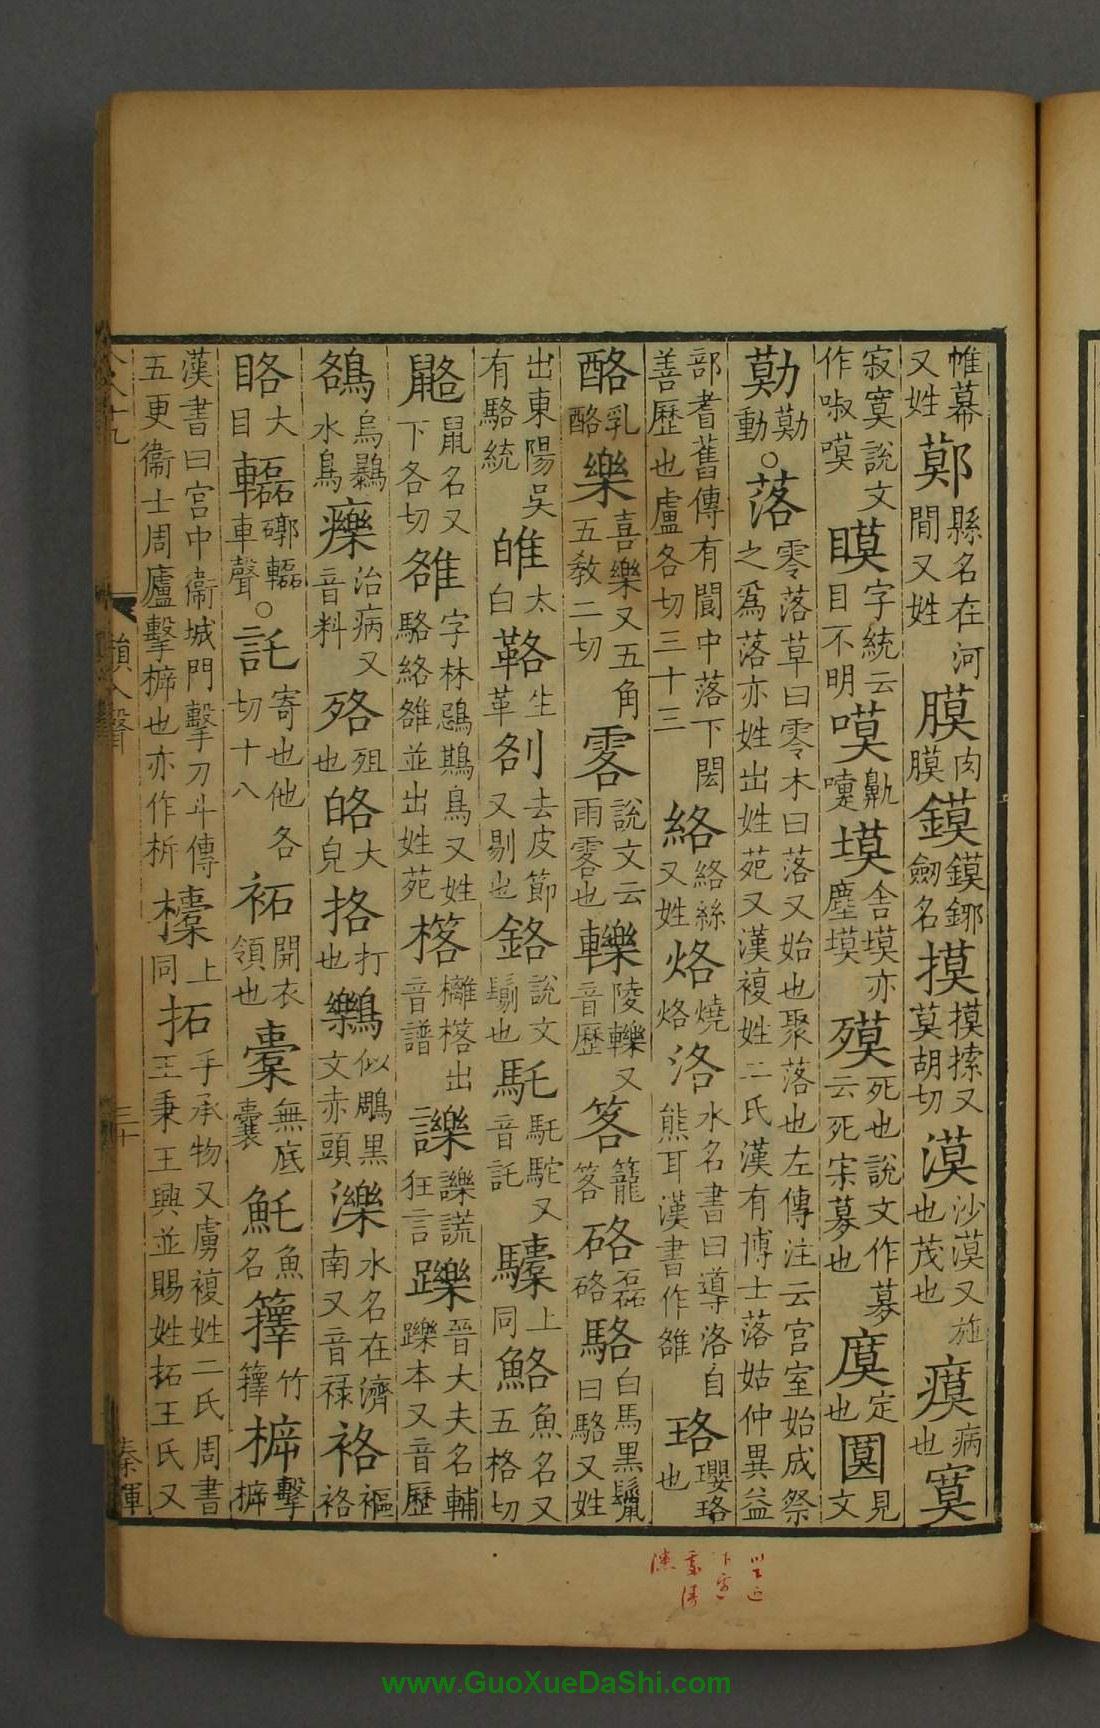 帷幕又姓鄚縣名在河閒又姓膜肉膜鏌鏌鋣劒名摸摸㨞又莫胡切漠沙漠又施也茂也瘼病也寞
寂寞說文作㖟嗼瞙字統云目不明嗼歎嚏塻舍塻亦塵塻㱳死也說文作募云死宗募也㢗定也圚見文
勱勱動○落零落草曰零木曰落又始也聚落也左傳注云宫室始成祭之爲落亦姓出姓苑又漢複姓二氏漢有博士落姑仲異益
部耆舊傳有閬中落下閎善歷也盧各切三十三絡絡絲又姓烙燒烙洛水名書曰導洛自熊耳漢書作雒珞瓔珞也
酪乳酪樂喜樂又五角五敎二切䨩說文云雨䨩也轢陵轢又音歷笿籠笿硌磊硌駱白馬黑鬛曰駱又姓
出東陽吳有駱統䧿太白鞈生革㓢去皮節又剔也鉻說文鬄也馲馲駝又音託驝上同鮥魚名又五格切
鼯鼠名又下各切雒字林鵋鶀鳥又姓駱絡雒並出姓苑楁欐楁出音譜𧭥𧭥謊狂言躒晉大夫名輔躒本又音歷
鵅烏鸔水鳥㿖治病又音料㱥殂也㿟大皃挌打也鸈似鵰黑文赤頭濼水名在濟南又音禄袼襱袼
㗉大目轠硠轠車聲○託寄也他各切十八袥開衣領也橐無底囊魠魚名籜竹籜㯓擊㯓
漢書曰宫中衞城門擊刀斗傳五更衞士周廬擊㯓也亦作柝㯱上同拓手承物又虜複姓二氏周書王秉王興並賜姓拓王氏又
韻入聲
三十
秦暉
www.GuoXueDaShi.com